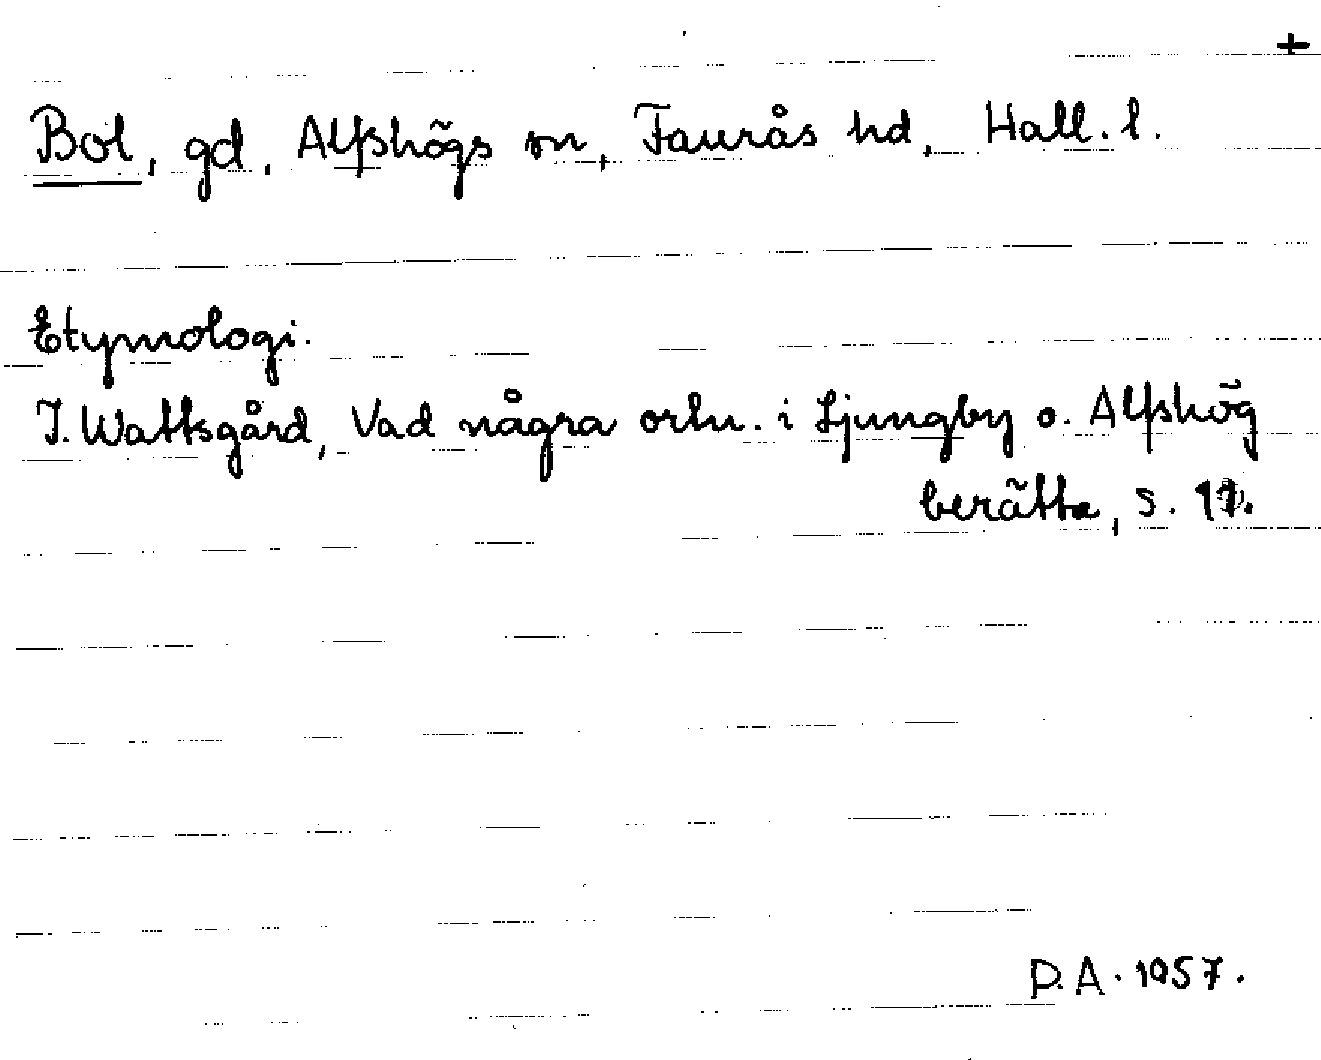 +
Bol, gd, Alfshögs sn, Faurås hd, Hall. l.
Etymologi.
J. Wattsgård, Vad några ortn. i Ljungby o. Alfshög
berätta, s. 17.
D.A. 1957.